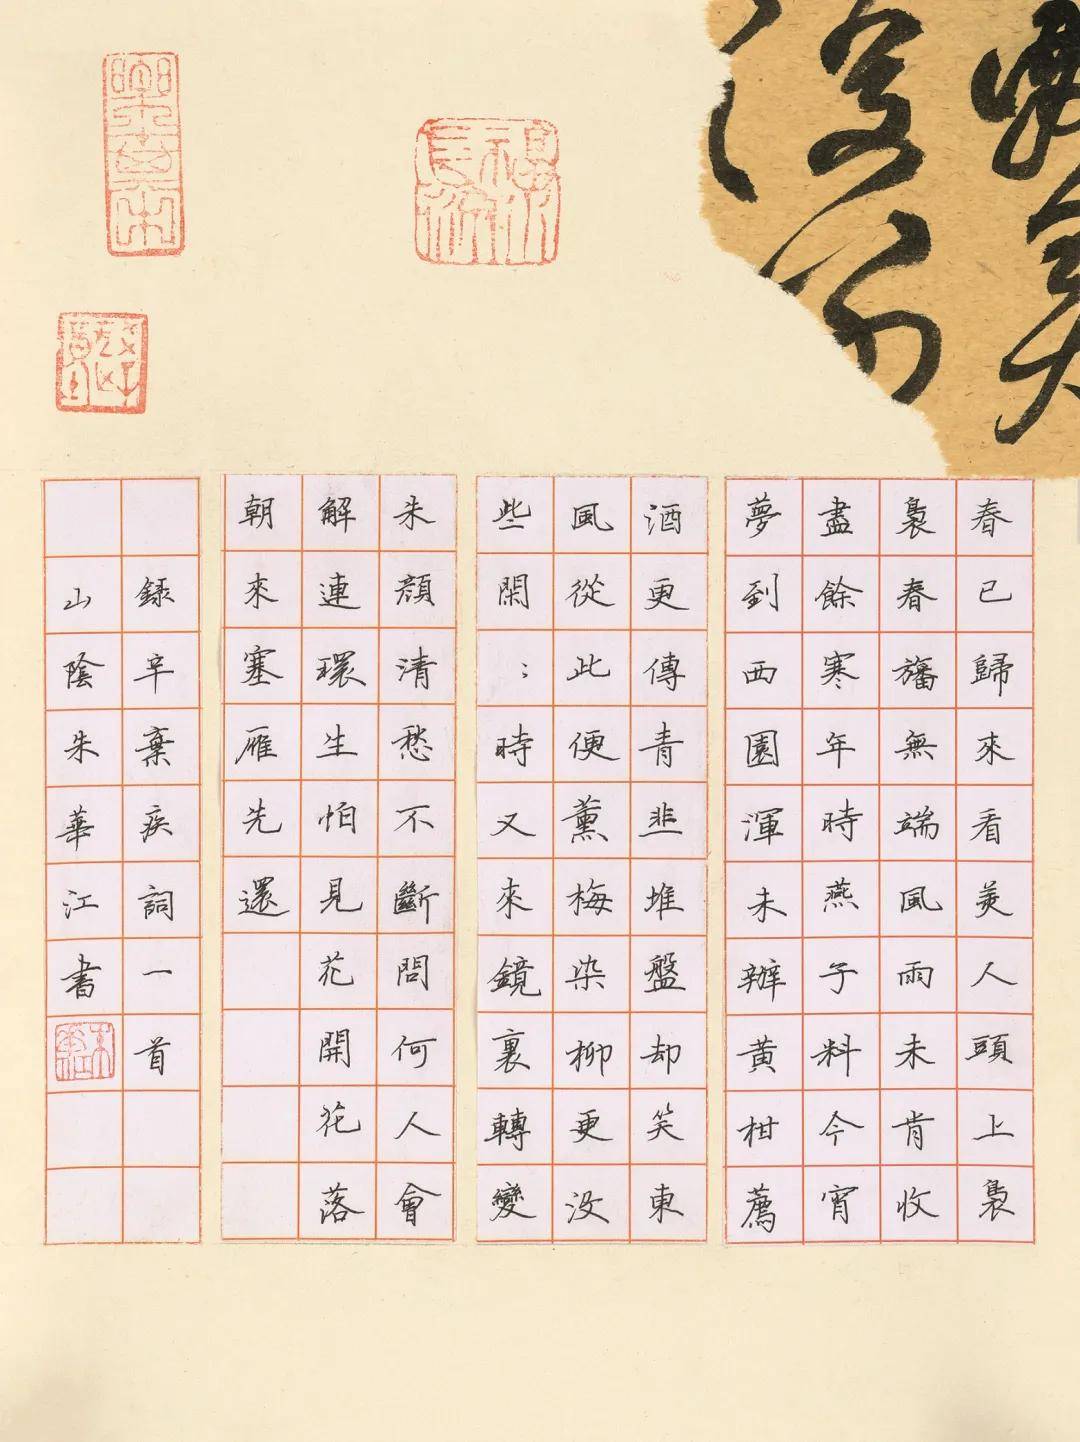 春已歸來看美人頭上裊
裊春旛無端風雨未肯收
盡餘寒年時燕子料今宵
夢到西園渾未辦黄柑薦
酒更傳青韭堆盤却笑東
風從此便薰梅染柳更没
些閑：時又來鏡裏轉變
朱顔清愁不斷問何人會
解連環生怕見花開花落
朝來塞雁先還
録辛棄疾詞一首
山陰朱華江書